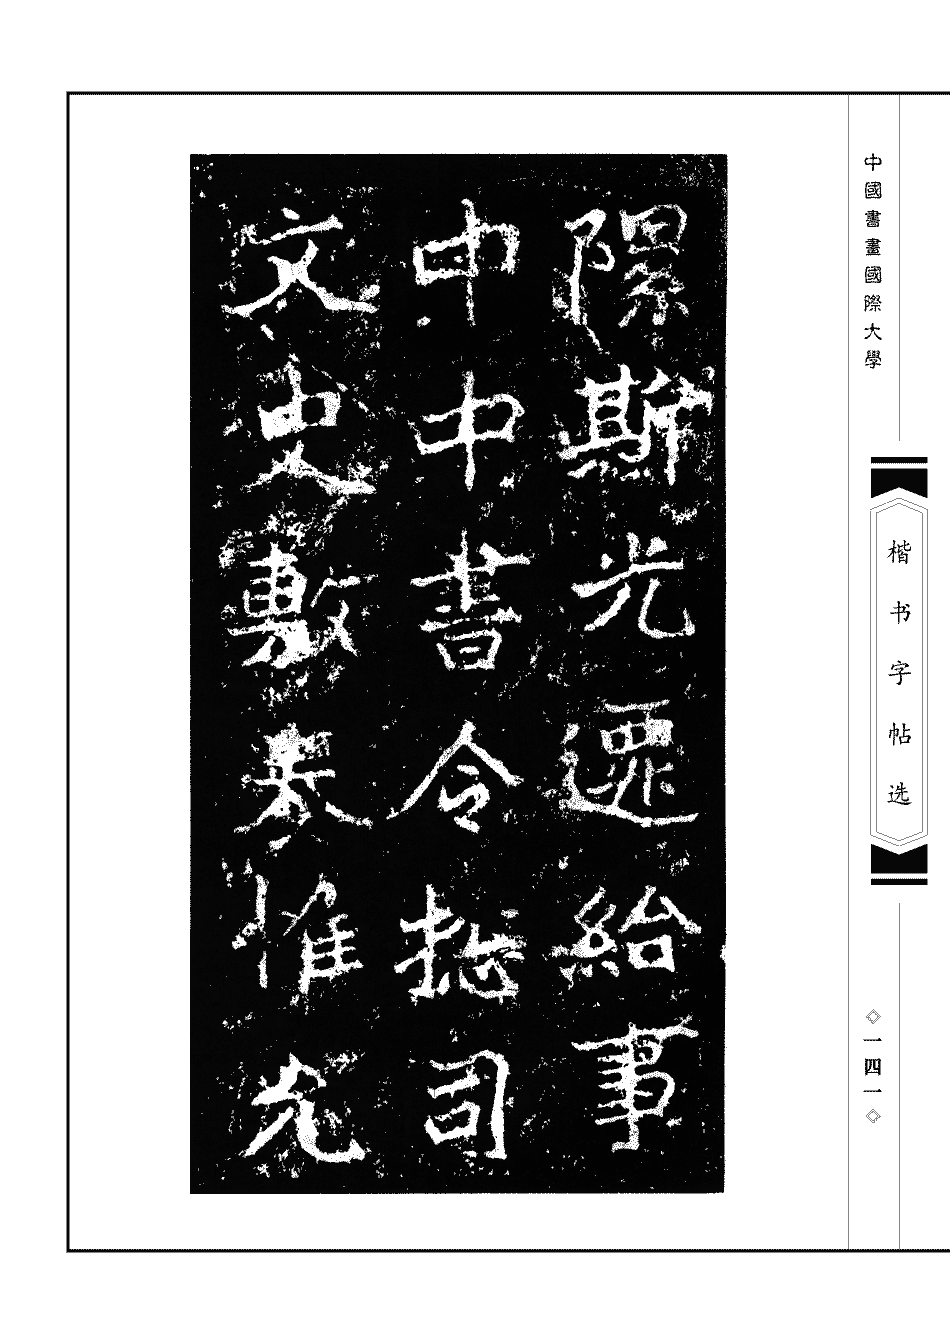 隰斯光遷給事
中中書令揔司
文史敷奏惟允
中國書畫國際大學
楷书字帖选
◇一四一◇